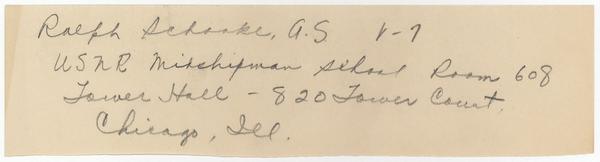 Ralph Schooke, A.S. V-7
USNR Midshipman School Room 608
Tower Hall - 820 Tower Court,
Chicago, Ill.